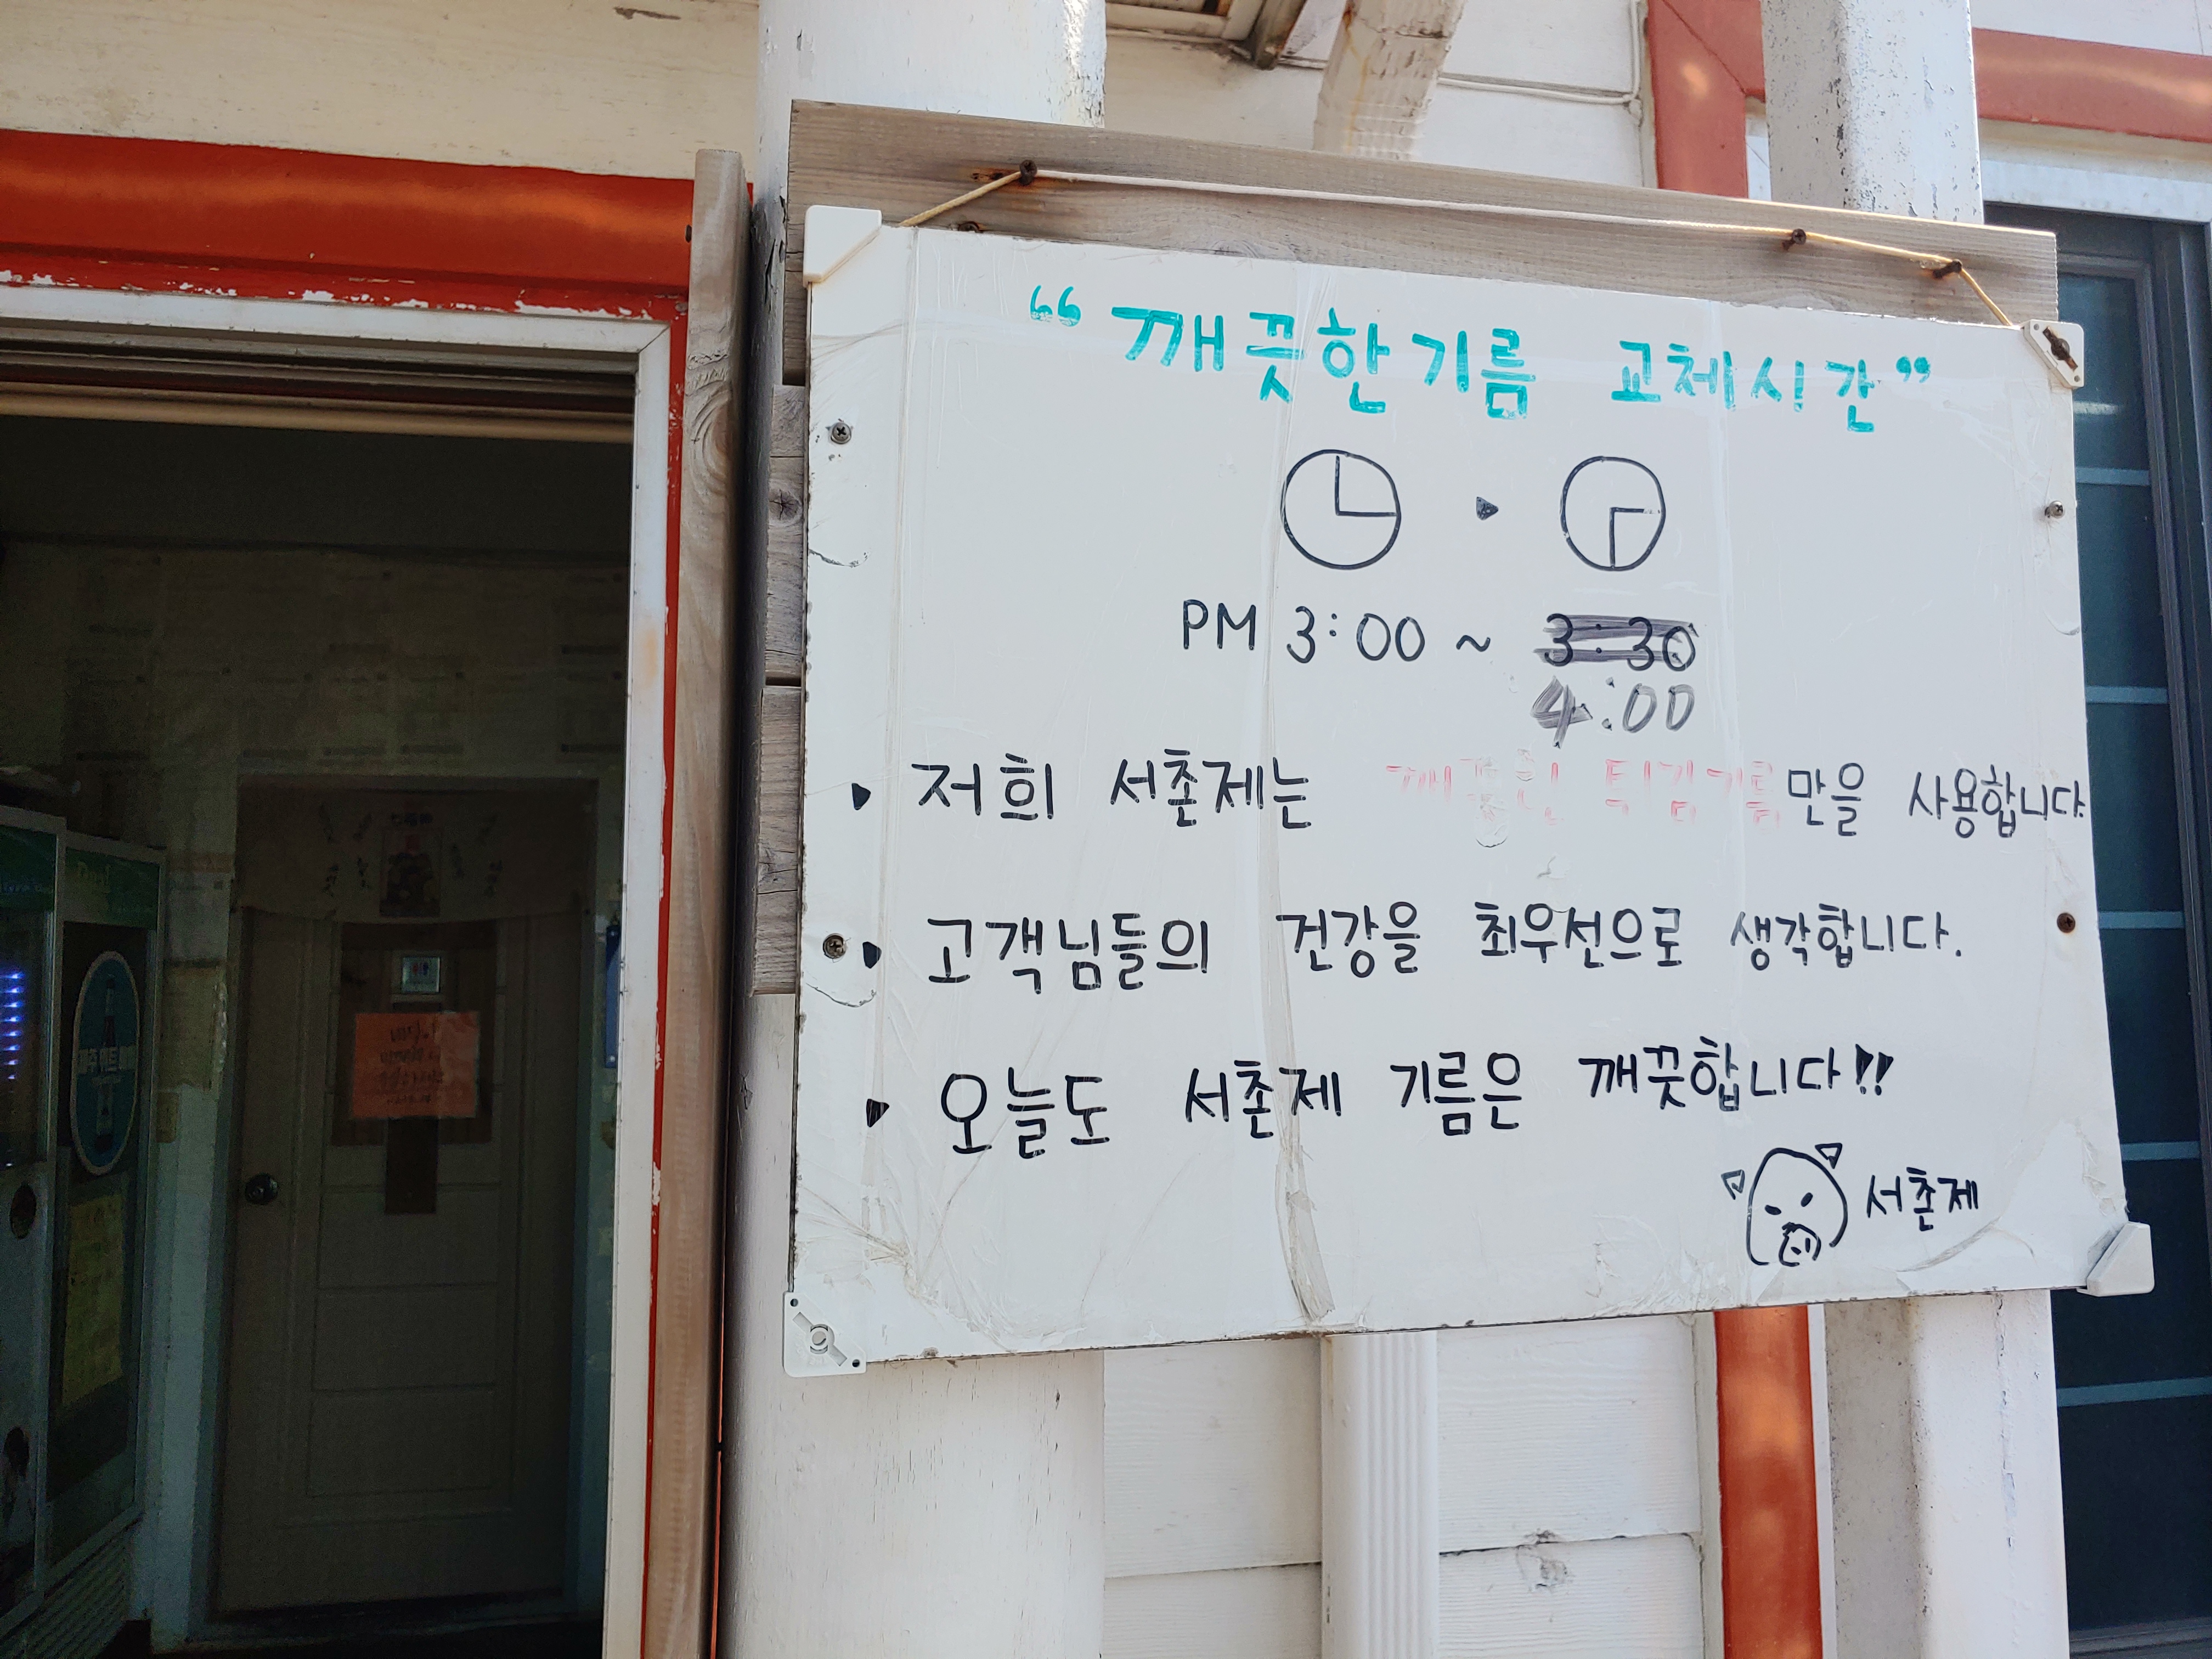 “깨끗한기름 교체시간”
PM 3:00 ~ 3:30
4:00
▸ 저희 서촌제는 깨끗한 튀김기름만을 사용합니다.
▸ 고객님들의 건강을 최우선으로 생각합니다.
▸ 오늘도 서촌제 기름은 깨끗합니다!!
서촌제